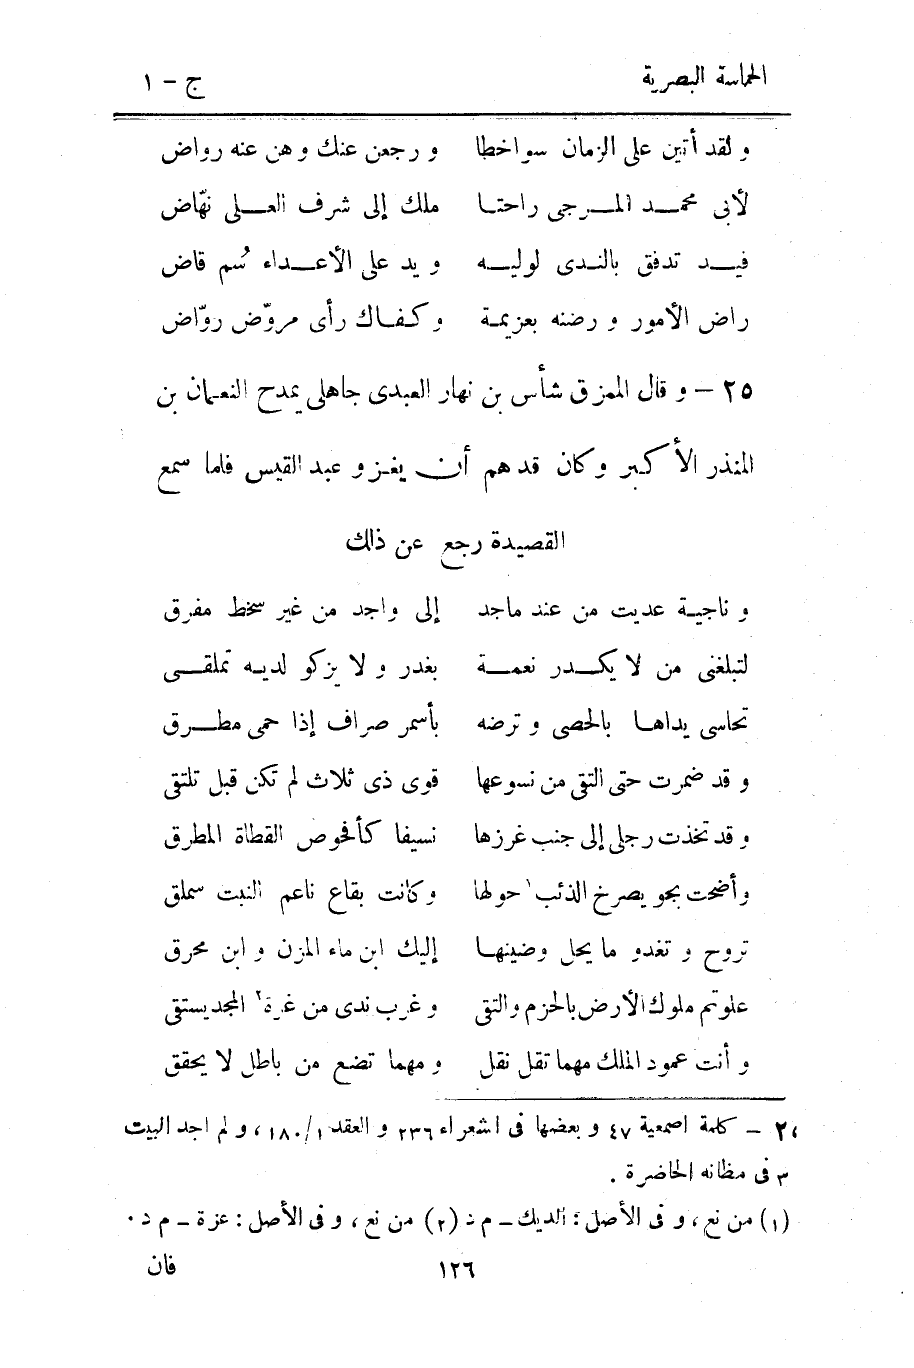 الحماسة البصرية ج - ١
و لقد أتين على الزمان سواخطا و رجعن عنك و هن عنه رواض
لأبى محمد المرجى راحتا ملك إلى شرف العلى نهّاض
فيد تدفق بالندى لوليه و يد على الأعداء سُم قاض
راض الأمور و رضنه بعزيمة و كفاك رأى مروّض روّاض
٢٥ - و قال الممزق شأس بن نهار العبدى جاهلى يمدح النعمان بن
المنذر الأكبر و كان قد هم أن يغزو عبد القيس فلما سمع
القصيدة رجع عن ذلك
و ناجية عديت من عند ماجد إلى واجد من غير سخط مفرق
لتبلغنى من لا يكدر نعمة بغدر و لا يزكو لديه تملقى
تحاسى يداها بالحصى و ترضه بأسمر صراف إذا حمى مطرق
و قد ضمرت حتى التقى من نسوعها قوى ذى ثلاث لم تكن قبل تلتقى
و قد تخذت رجلى إلى جنب غرزها نسيفا كأفحوص القطاة المطرق
وأضحت بجو يصرخ الذئب ١ حولها وكانت بقاع ناعم النبت سملق
تروح و تغدو ما يحل وضينها إليك ابن ماء المزن و ابن محرق
علوتم ملوك الأرض بالحزم والتقى و غرب ندى من غرة ٢ المجد يستقى
و أنت عمود الملك مهما تقل نقل و مهما تضع من باطل لا يحقق
٢٥ - كلمة اصمعية ٤٧ و بعضها فى اشعراء ٢٣٦ و العقد ١/ ١٨٠، و لم اجد البيت
٣ فى مظانه الحاضرة .
(١) من نع، و فى الأصل: الديك - م د (٢) من نع، و فى الأصل: عزة - م د ٠
١٢٦ فان